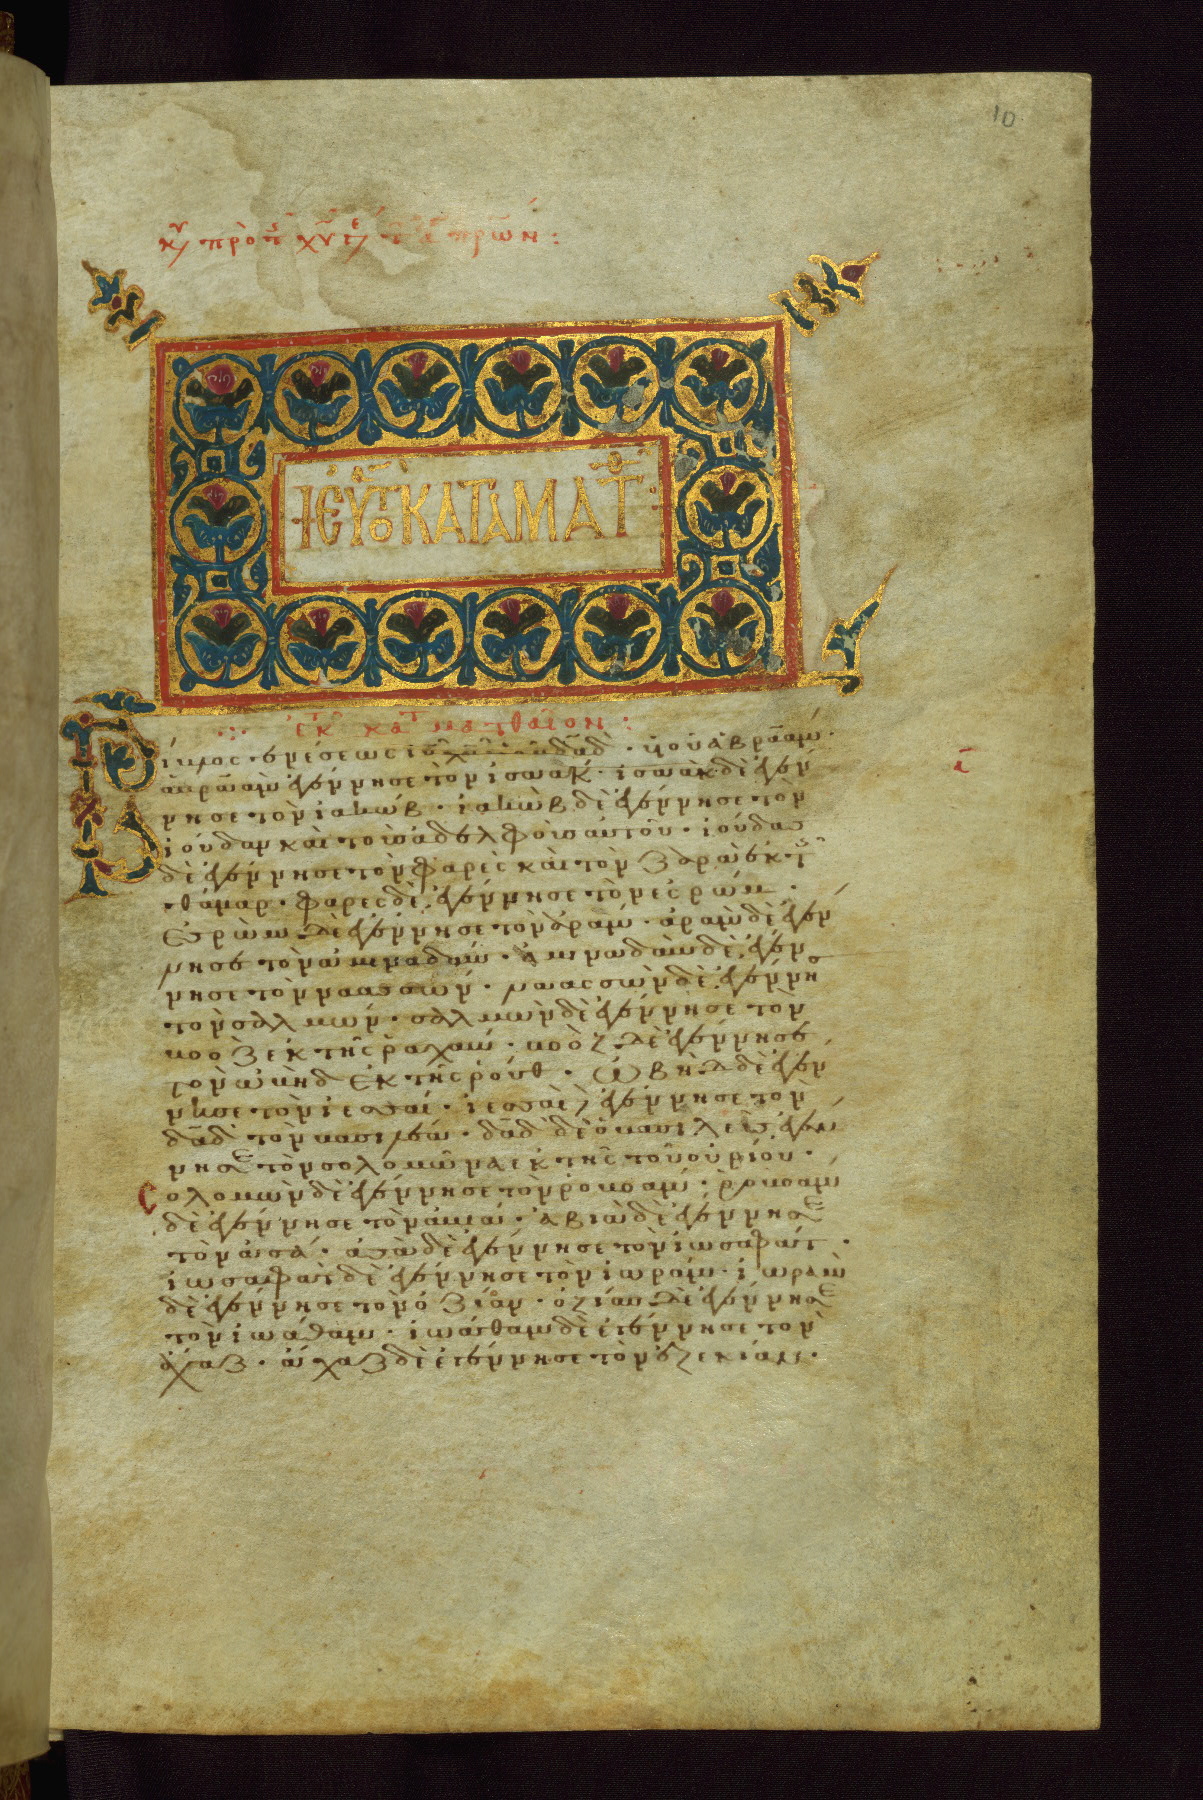 10
κυ πρὸ τ χυ γε τ πρων :
+ ΕΥΑΓ ΚΑΤΑ ΜΑΤ
ἐκ κατ ματθαῖον :
Βίβλος γενέσεως ιυ χυ υυ δαδ · υυ ἀβραάμ ·
ἀβραὰμ ἐγέννησε τὸν ισαάκ · ισαὰκ δὲ ἐγέν
νησε τὸν ιακώβ · ιακὼβ δὲ ἐγέννησε τὸν
ιούδαν καὶ τοὺσ ἀδελφοὺσ αὐτοῦ · ιούδασ
δὲ ἐγέννησε τὸν φαρὲς καὶ τὸν ζαρὰ ἐκ τ
θάμαρ · φαρες δὲ ἐγέννησε τὸν ἐσρώμ ·
Εσρὼμ δὲ ἐγέννησε τὸν ἀράμ · ἀρὰμ δὲ ἐγέν
νησε τὸν ἀμιναδάμ · ἀμιναδὰμ δὲ ἐγέν
νησε τὸν ναασσών · ναασσὼν δὲ ἐγέννησ
τὸν σαλμών · σαλμὼν δὲ ἐγέννησε τὸν
βοὸζ ἐκ τῆς ῥαχάμ · βοὸζ δὲ ἐγέννησε
τὸν ὠβὴδ ἐκ τῆς ῥούθ · ὠβὴδ δὲ ἐγέν
νησε τὸν ιεσσαί · ιεσσαὶ δὲ ἐγέννησε τὸν
δαδ τὸν βασιλέα · δαδ δὲ ὁ βασιλεὺσ ἐγέν
νησε τὸν σολομῶνα ἐκ τῆς τοῦ οὐρίου ·
Σολομὼν δὲ ἐγέννησε τὸν ῥοβοάμ · ῥοβοὰμ
δὲ ἐγέννησε τὸν ἀβιά · ἀβιὰ δὲ ἐγέννησε
τὸν ἀσά · ἀσὰ δὲ ἐγέννησε τὸν ιωσαφάτ ·
ιωσαφὰτ δὲ ἐγέννησε τὸν ιωράμ · ιωρὰμ
δὲ ἐγέννησε τὸν ὀζίαν · ὀζίασ δὲ ἐγέννησε
τὸν ιωάθαμ · ιωάθαμ δὲ ἐγέννησε τὸν
ἄχαζ · ἄχαζ δὲ ἐγέννησε τὸν ἐζεκίαν ·